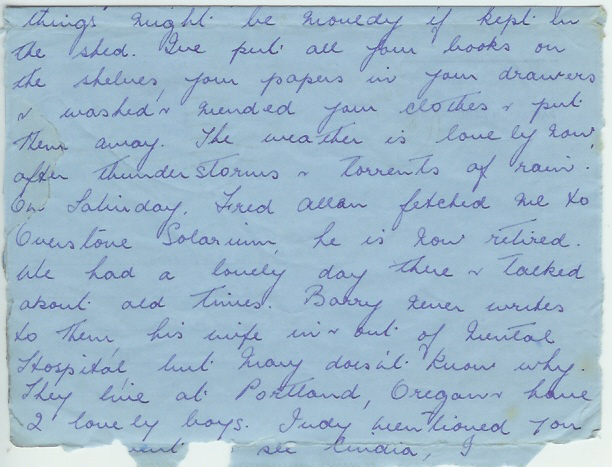 things might be mouldy if kept in
the shed. I've put all your books on
the shelves, your papers in your drawers
& washed & mended your clothes & put
them away. The weather is lovely now,
after thunderstorms & torrents of rain.
On Saturday, Fred Allan fetched me to
Overstone Solarium, he is now retired.
We had a lovely day there & talked
about old times. Barry never writes
to them, his wife in & out of Mental
Hospital but Mary doesn't know why.
They live at Portland, Oregon & have
2 lovely boys. Judy mentioned you
went see I